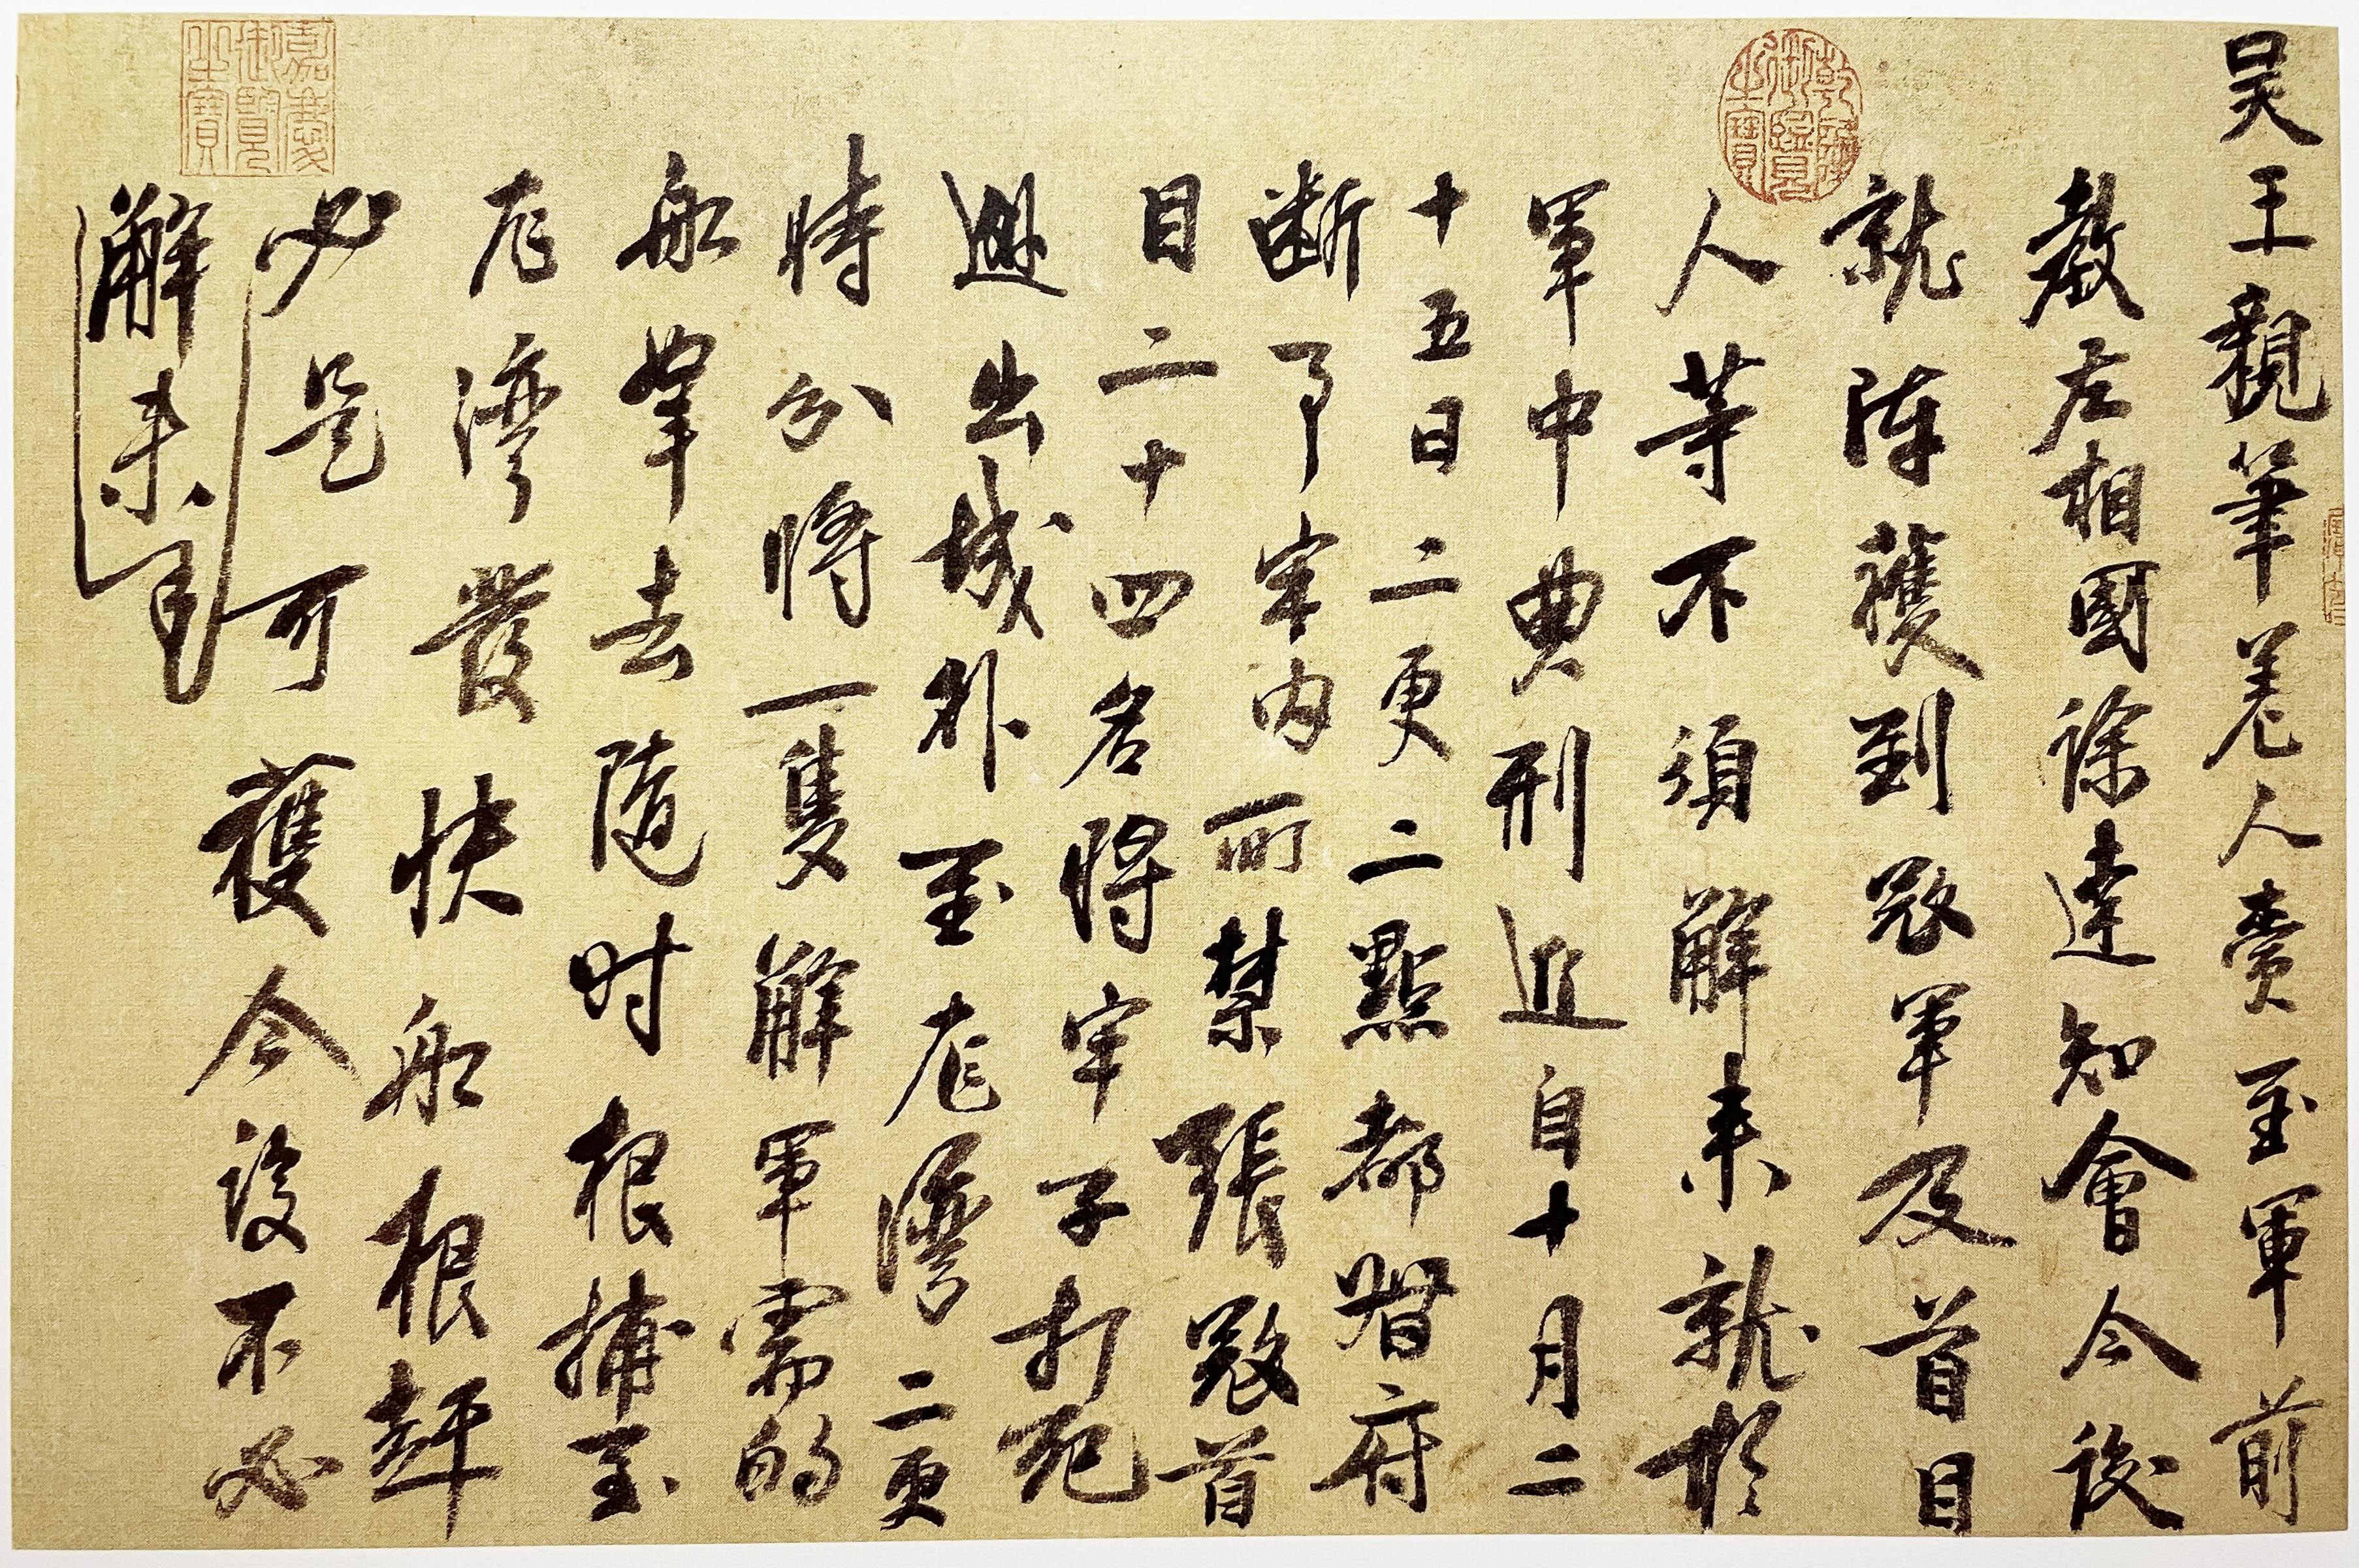 吴王親筆差人賫至軍前
教左相國徐達知會今後
就陣獲到寇軍及首目
人等不須觧来就於
軍中典刑近自十月二
十五日二更二點都督府
斷了牢内所禁張寇首
目二十四名將牢子打死
出城外至龙湾二更
時分將一隻觧軍需的
船拏去随时根捕至
龙湾發快船根趕
必是可獲今後不必
觧来
乾隆御覽之寶
嘉慶御覽之寶